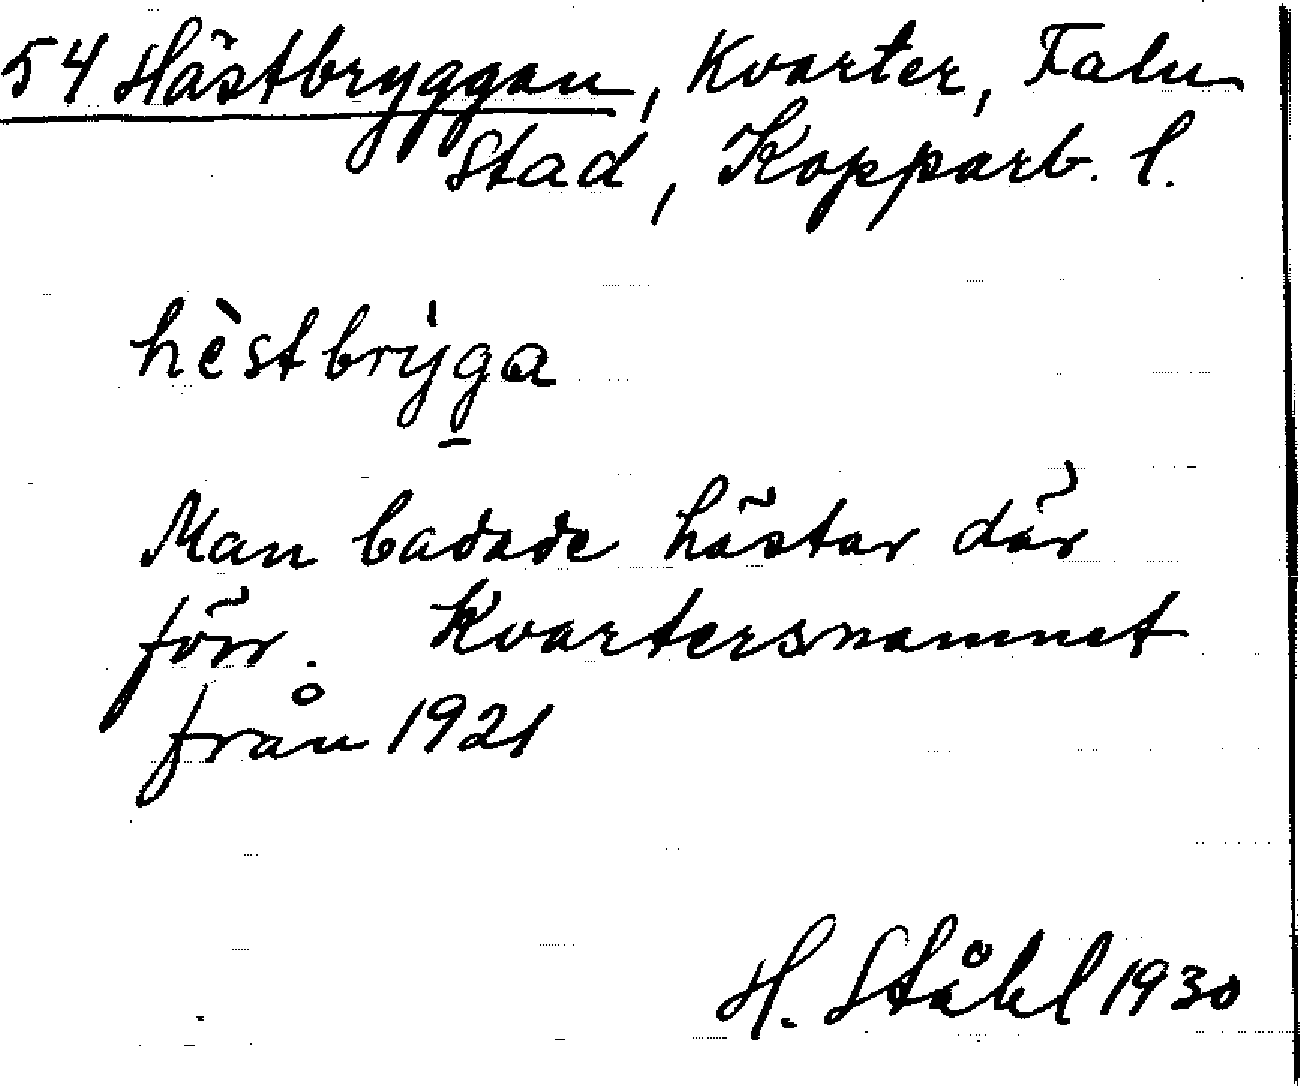 54 Hästbryggan, Kvarter, Falu
Stad, Kopparb. l.
hèstbrýg̱a
Man badade hästar där
förr. Kvartersnamnet
från 1921
H. Ståhl 1930